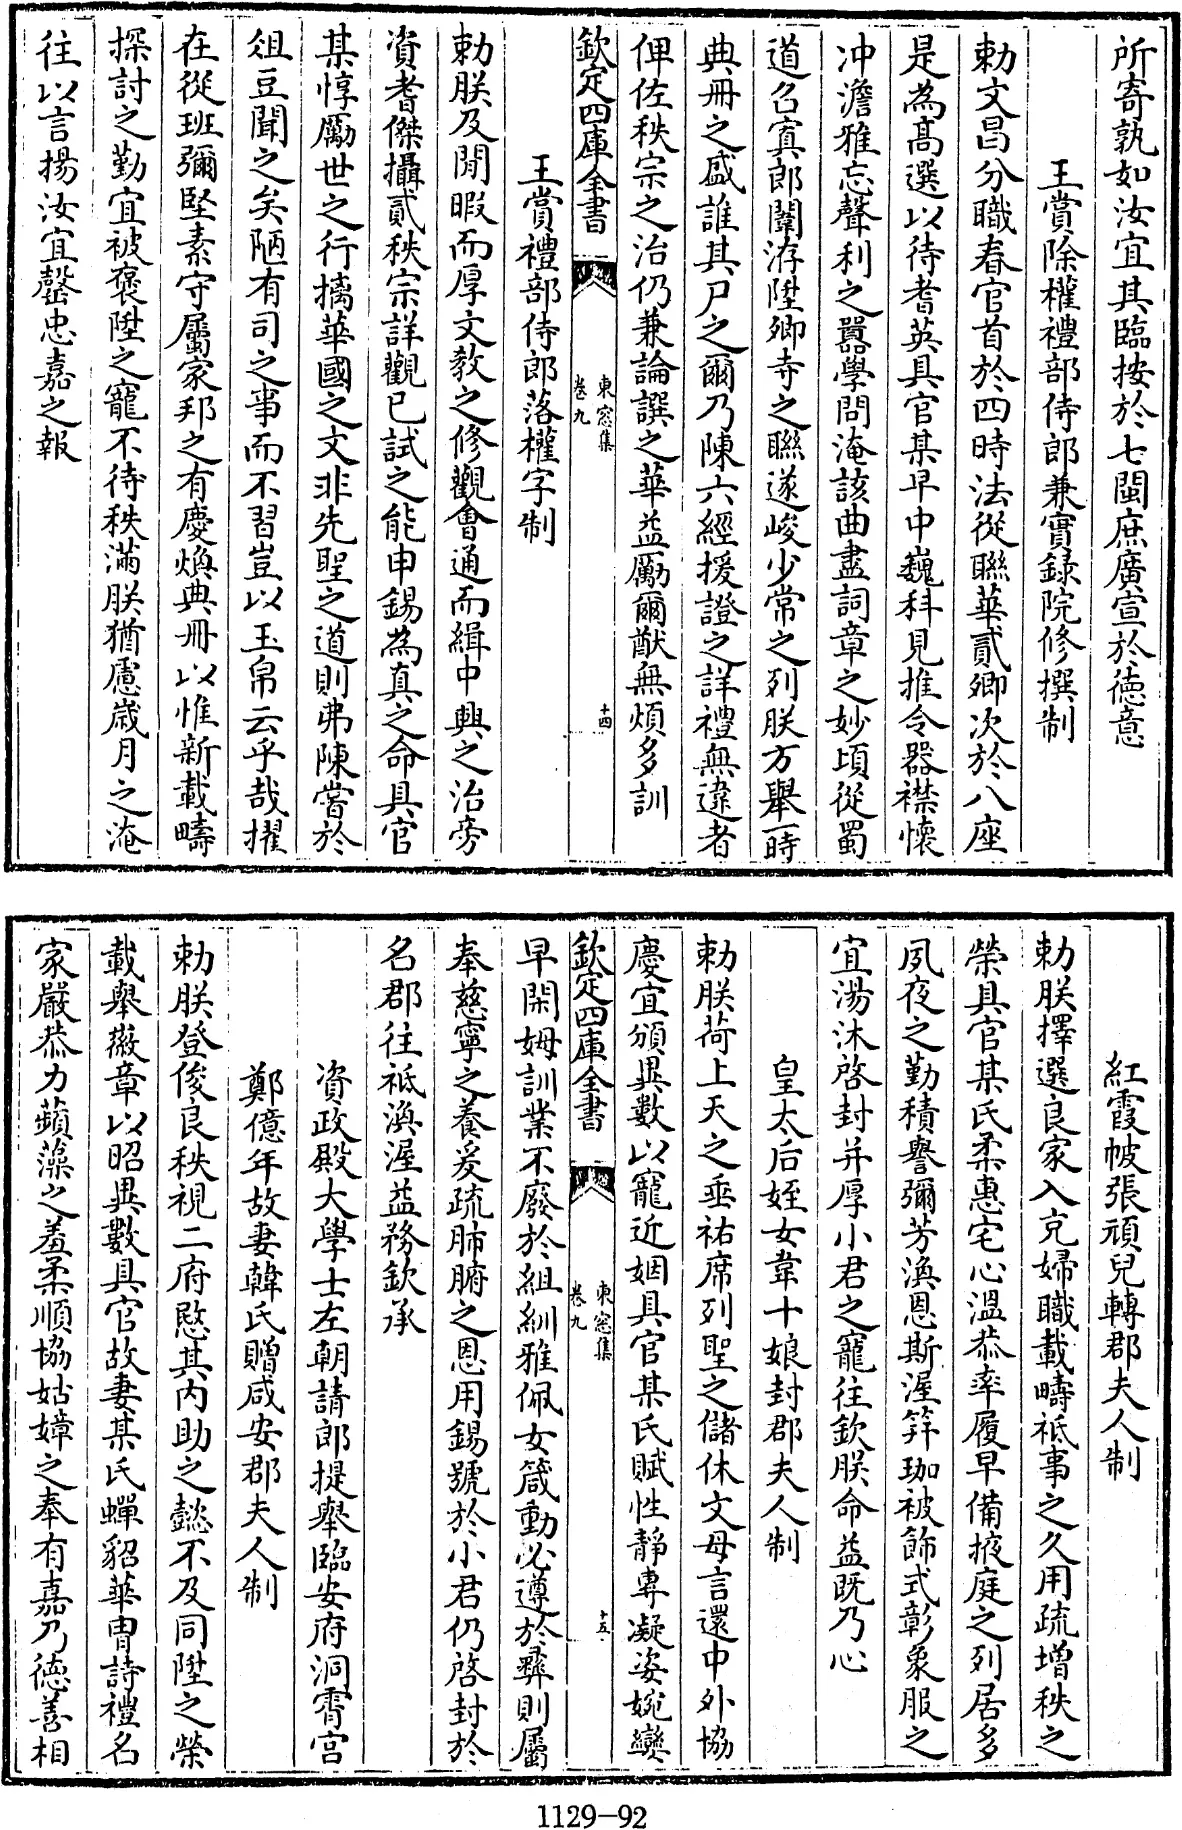 所寄孰如汝宜其臨按於七閩庶廣宣於德意
王賞除權禮部侍郎兼實録院修撰制
勅文昌分職春官首於四時法從聯華貳卿次於八座
是為髙選以待耆英具官某早中巍科見推令器襟懷
冲澹雅忘聲利之囂學問淹該曲盡詞章之妙頃從蜀
道召寘郎闈洊陞卿寺之聯遂峻少常之列朕方舉一時
典冊之盛誰其尸之爾乃陳六經援證之詳禮無違者
俾佐秩宗之治仍兼論譔之華益勵爾猷無煩多訓
欽定四庫全書
東窓集
卷九
十四
王賞禮部侍郎落權字制
勅朕及閒暇而厚文教之修觀會通而緝中興之治旁
資耆傑攝貳秩宗詳觀已試之能申錫為真之命具官
某惇勵世之行摛華國之文非先聖之道則弗陳嘗於
俎豆聞之矣陋有司之事而不習豈以玉帛云乎哉擢
在從班彌堅素守屬家邦之有慶煥典冊以惟新載疇
探討之勤宜被褒陞之寵不待秩滿朕猶慮歲月之淹
往以言揚汝宜罄忠嘉之報
紅霞帔張頑兒轉郡夫人制
勅朕擇選良家入充婦職載疇祗事之久用疏增秩之
榮具官某氏柔惠宅心溫恭率履早備掖庭之列居多
夙夜之勤積譽彌芳渙恩斯渥笄珈被飾式彰象服之
宜湯沐啓封并厚小君之寵往欽朕命益旣乃心
皇太后姪女韋十娘封郡夫人制
勅朕荷上天之垂祐席列聖之儲休文母言還中外協
慶宜頒異數以寵近姻具官某氏賦性靜專凝姿婉孌
欽定四庫全書
東窓集
卷九
十五
早閑姆訓業不廢於組紃雅佩女箴動必遵於彞則屬
奉慈寧之養爰疏肺腑之恩用錫號於小君仍啓封於
名郡往祗渙渥益務欽承
資政殿大學士左朝請郎提舉臨安府洞霄宫
鄭億年故妻韓氏贈咸安郡夫人制
勅朕登俊良秩視二府愍其内助之懿不及同陞之榮
載舉徽章以昭異數具官故妻某氏蟬貂華胄詩禮名
家嚴恭力蘋藻之羞柔順協姑嫜之奉有嘉乃德善相
1129-92